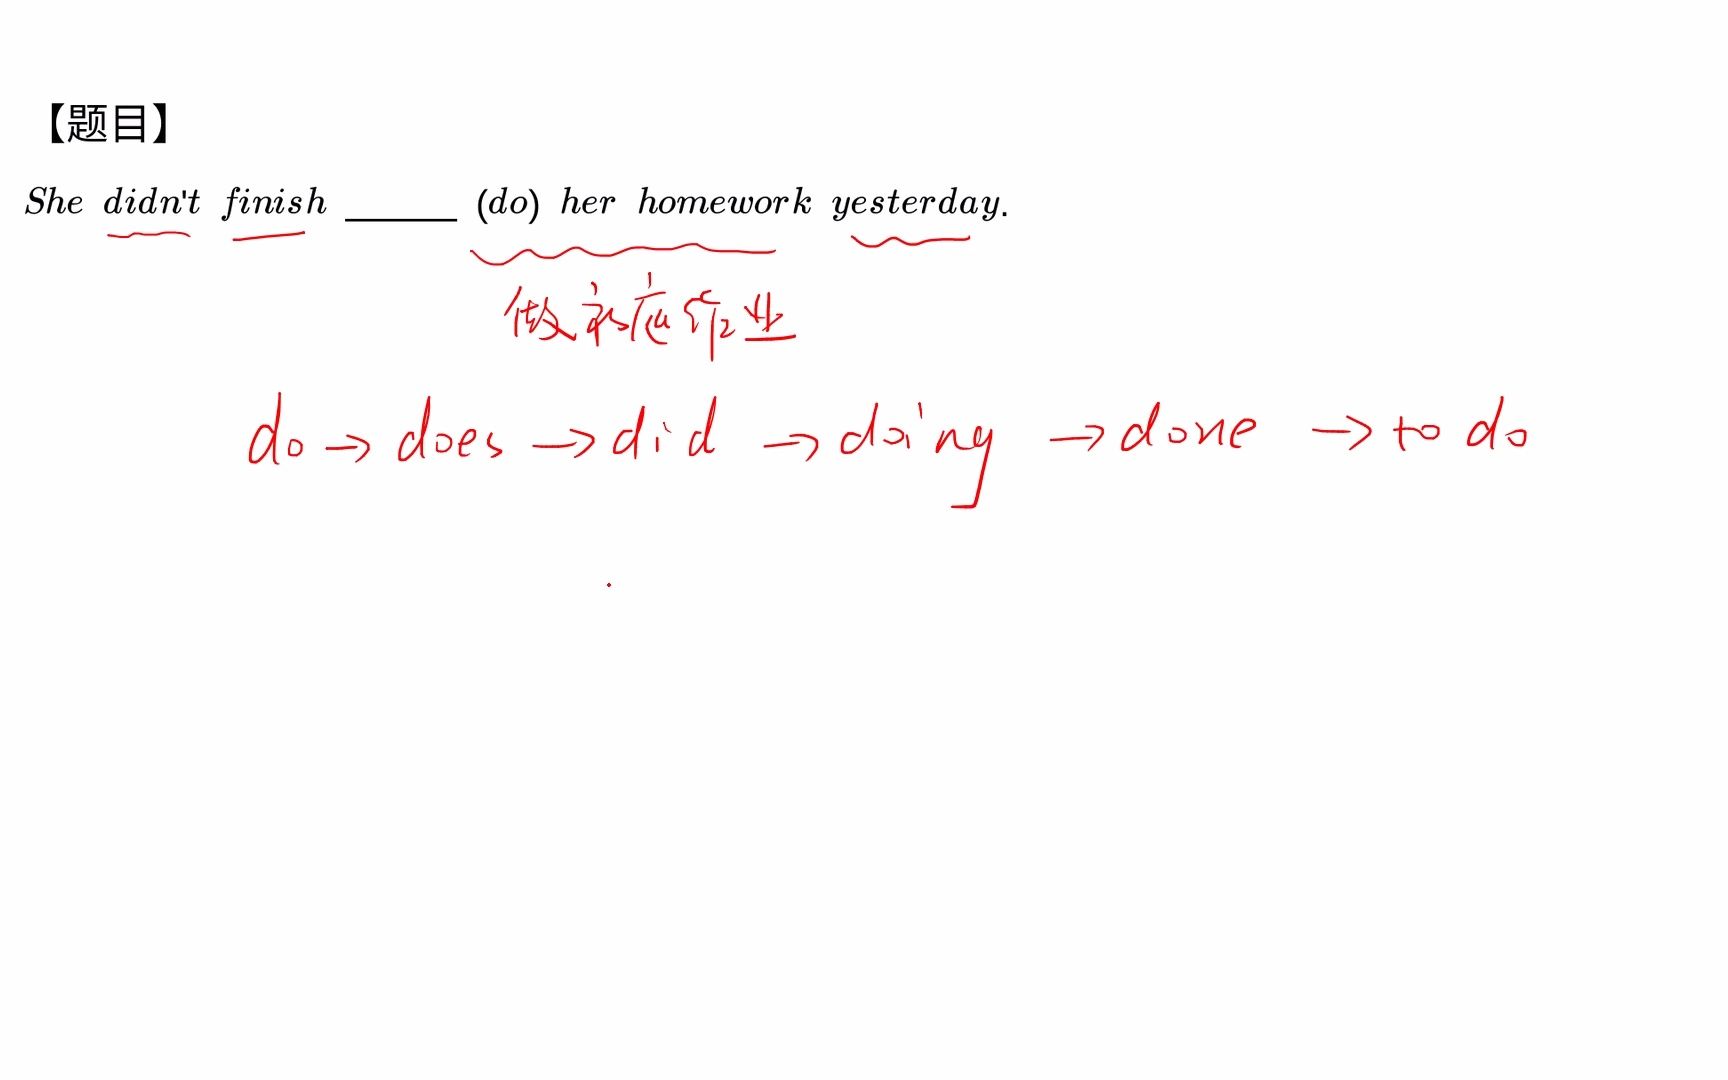 【题目】
She didn't finish ______ (do) her homework yesterday.
做家庭作业
do → does → did → doing → done → to do